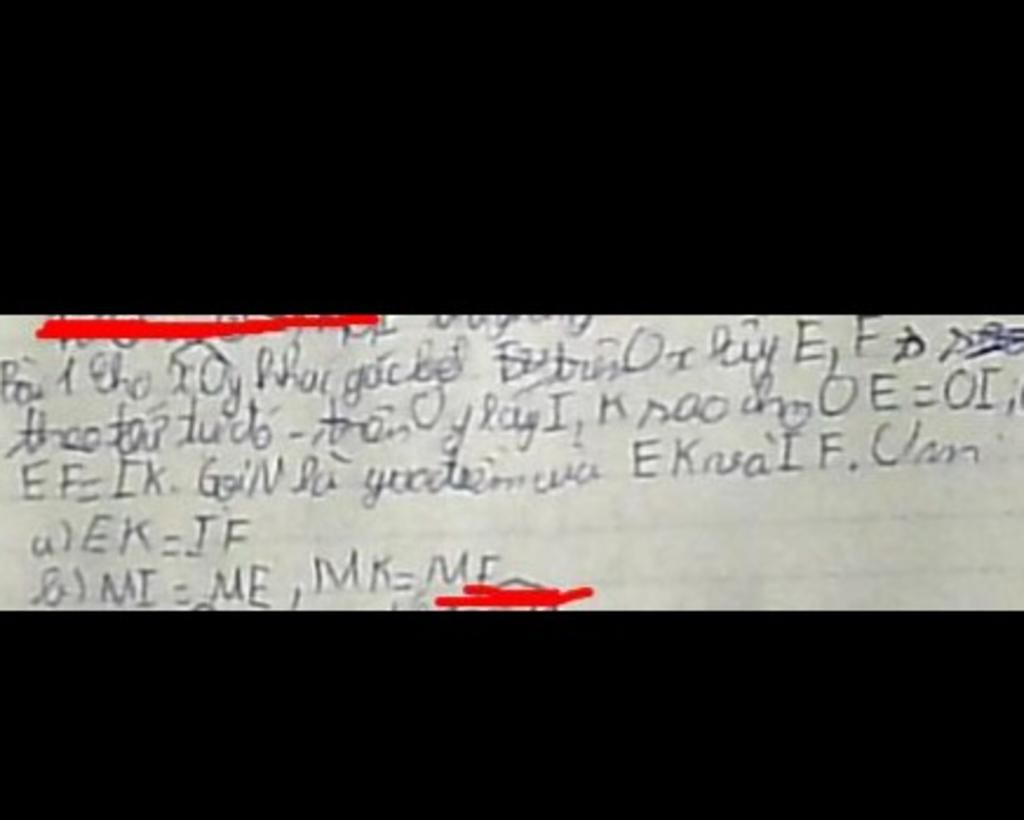 Bài 1 Cho xOy khác góc bẹt trên Ox lấy E, F
theo tứ tự đó - trên Oy lấy I, K sao cho OE = OI,
EF = IK. Gọi là giao điểm của EK và IF.
a) EK = IF
b) MI = ME, MK = MF